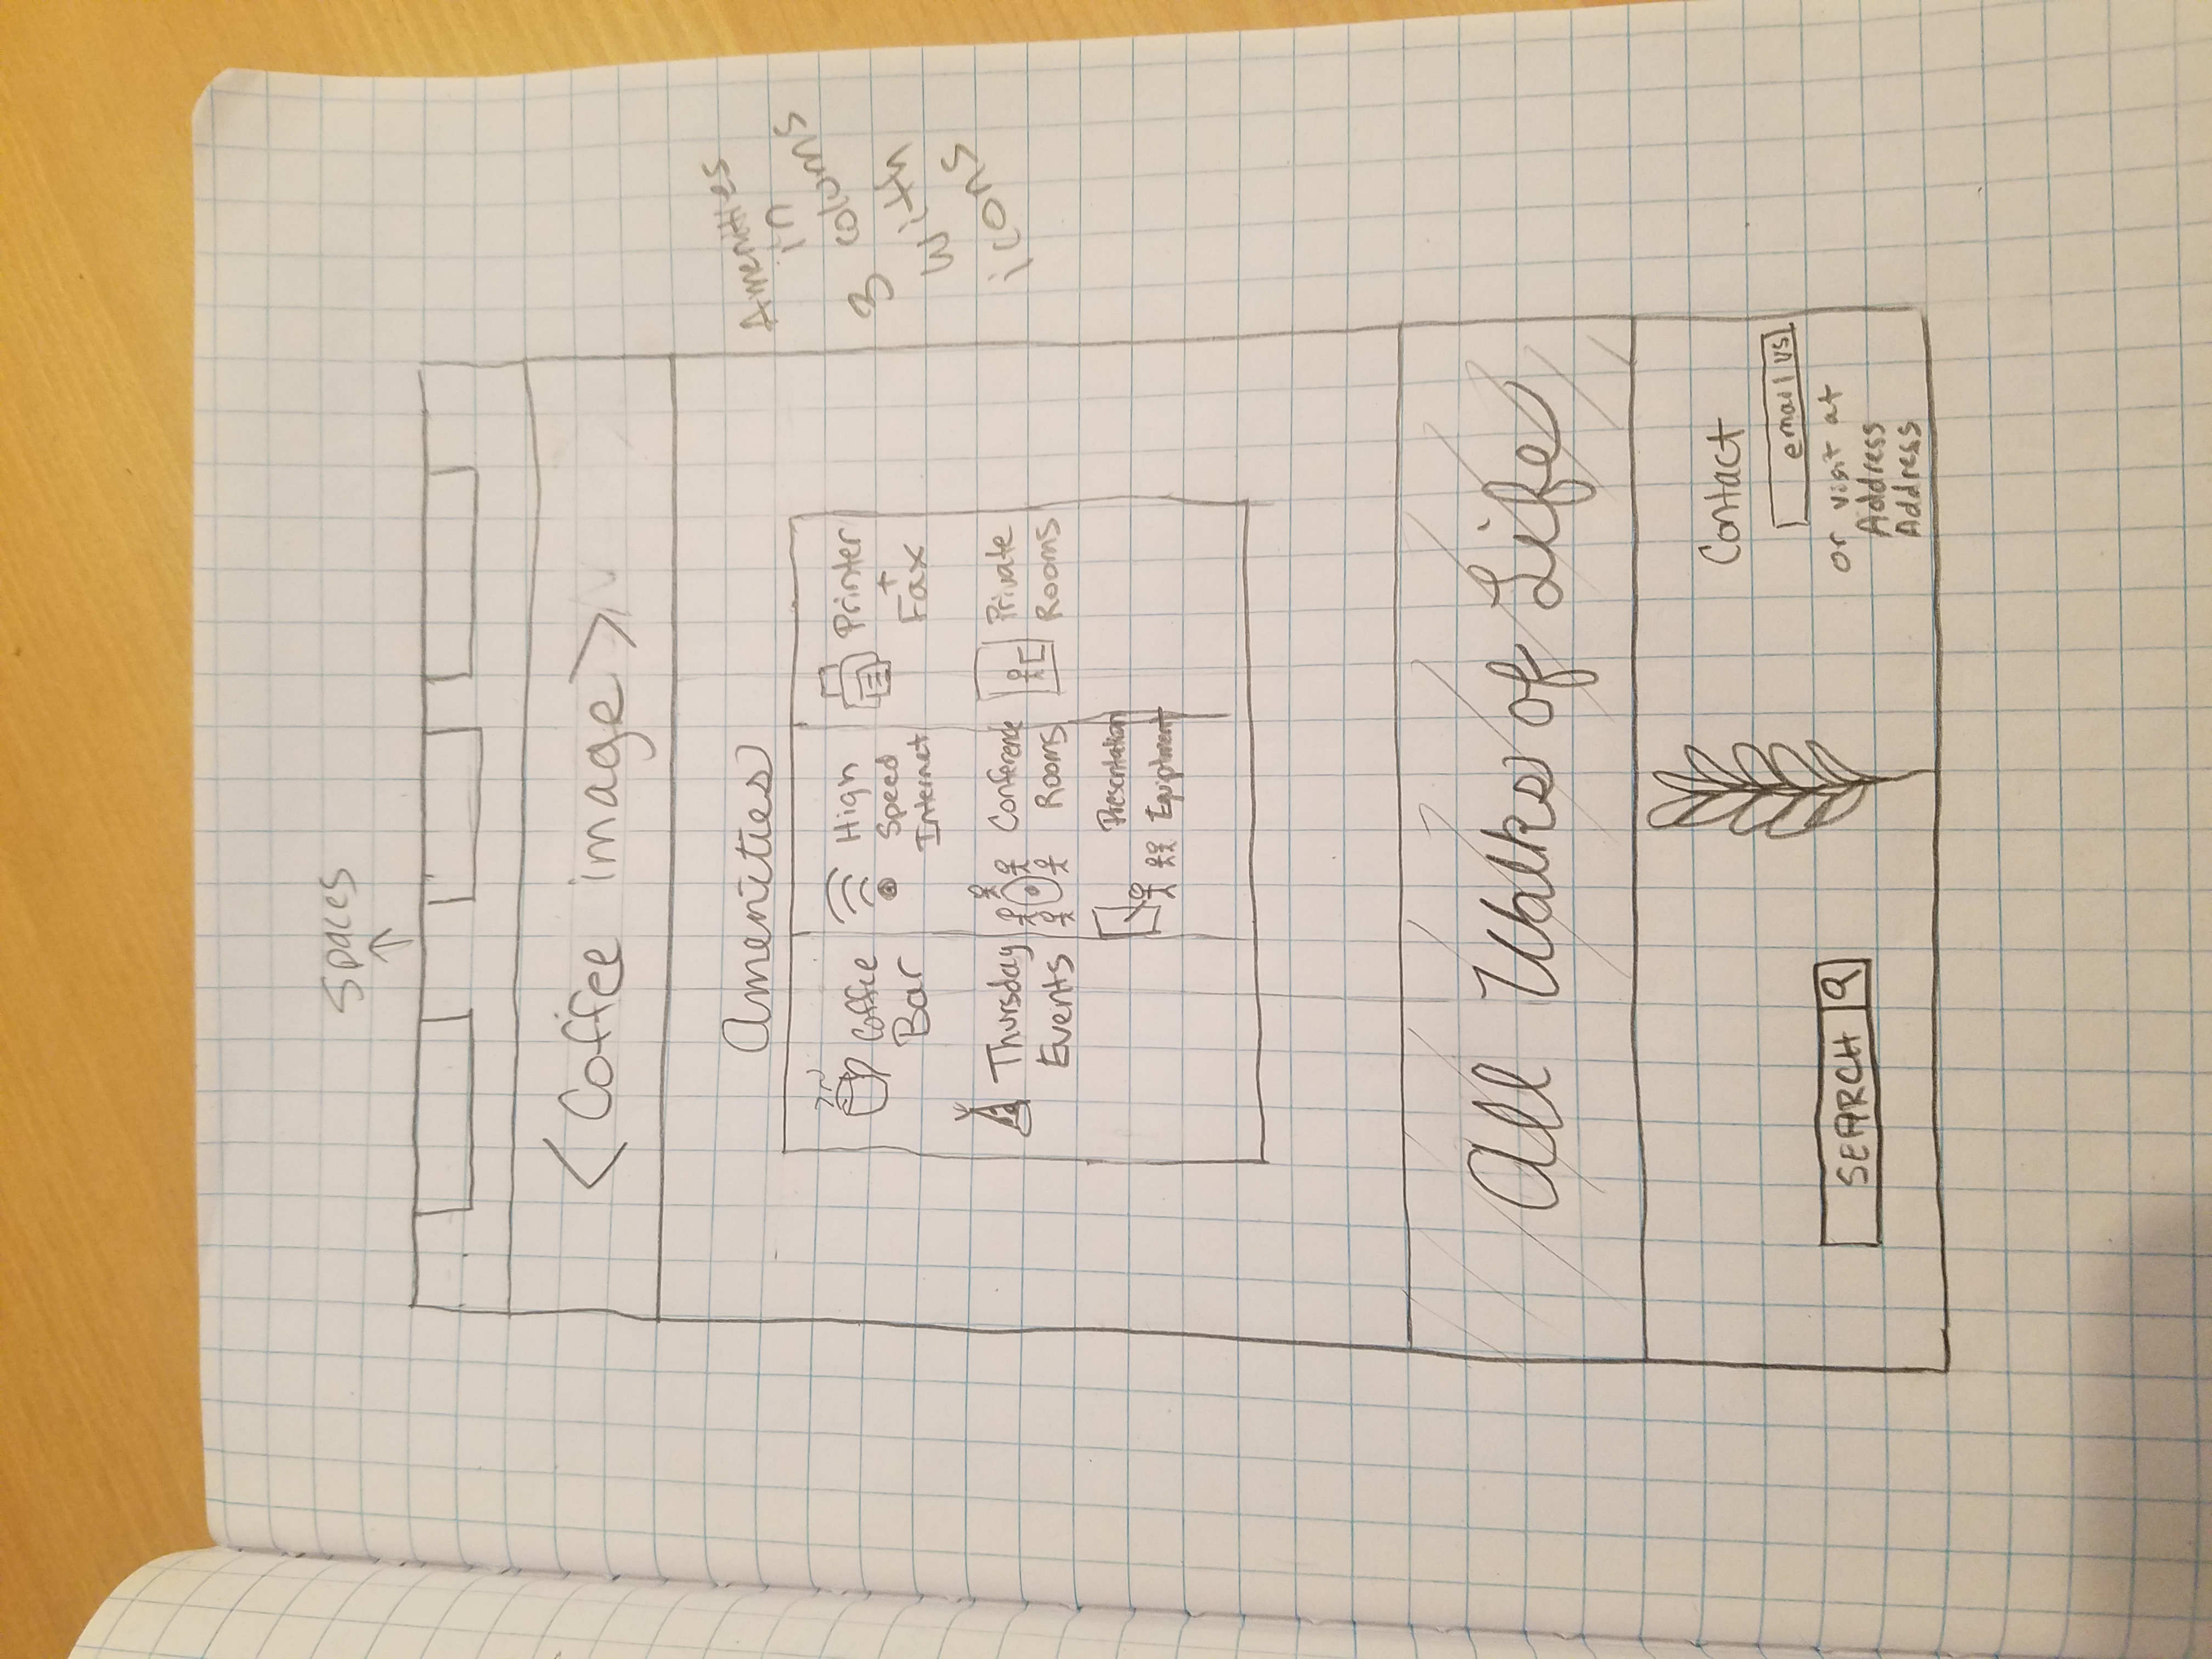 Spaces
<Coffee image>
Amenities
Coffee
Bar
High
Speed
Internet
Printer
+
Fax
Thursday
Events
Conference
Rooms
Private
Rooms
Presentation
Equiptment
Amenities
in
3 colums
with
icons
All Walks of Life
SEARCH
Contact
email us
or visit at
Address
Address